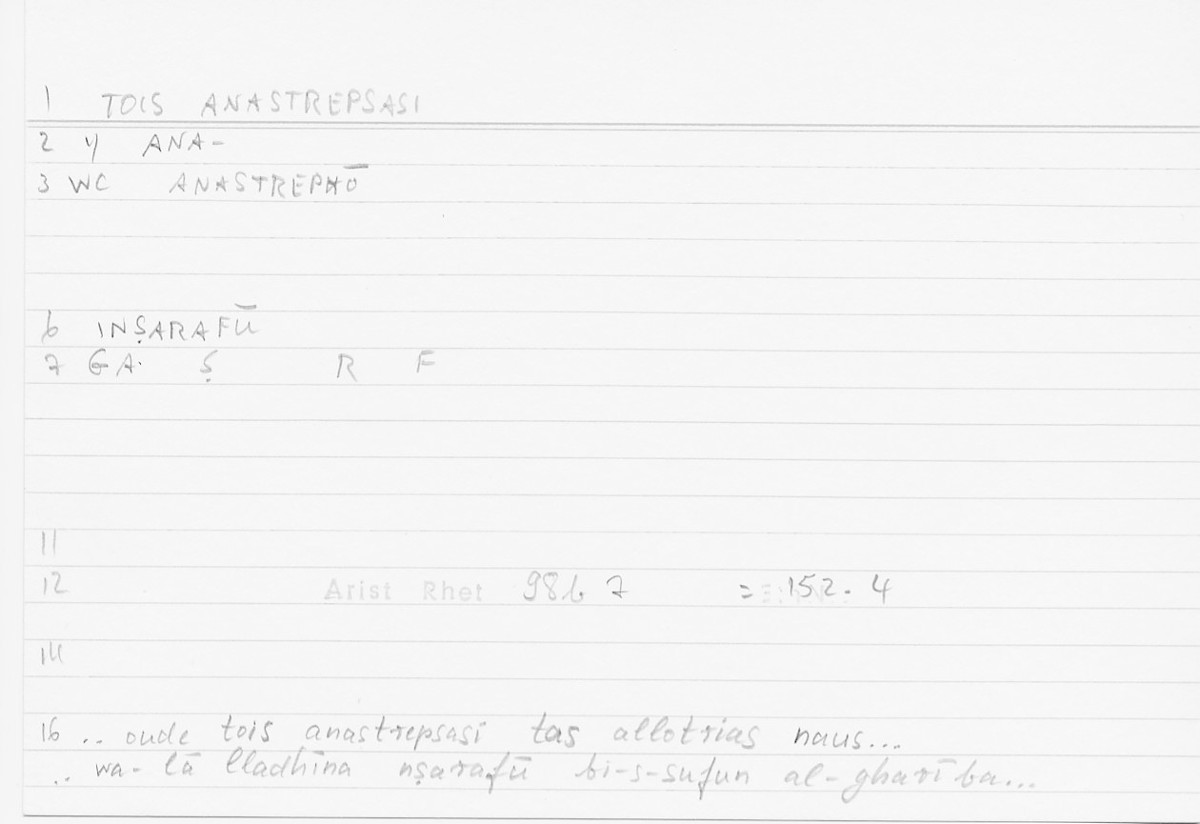 1 TOIS ANASTREPSASI
2 y ANA-
3 WC ANASTREPHŌ
6 INṢARAFŪ
7 GA· Ṣ R F
11
12 Arist Rhet 98b 7 = 152. 4
14
16 .. oude tois anastrepsasi tas allotrias naus...
.. wa-lā lladhīna nṣarafū bi-s-sufun al-gharība...